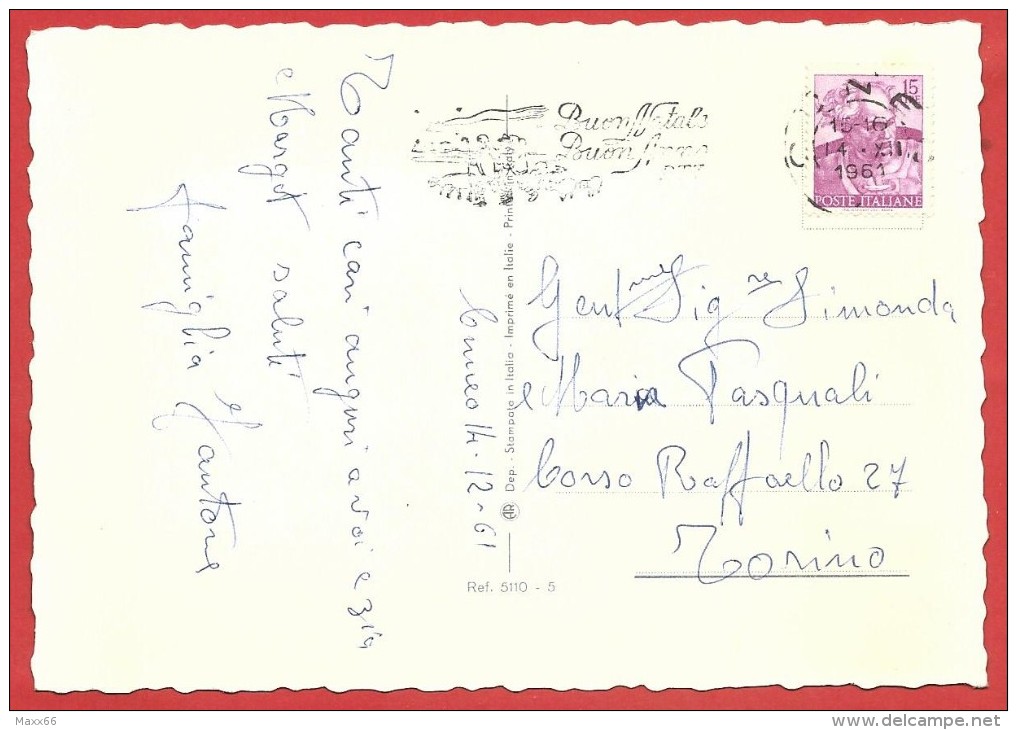 Tanti cari auguri a voi e zia
e Margot saluti
famiglia
Cuneo 14-12-61
Buon Natale
Buon Anno
15-16
14 XII
1961
15
POSTE ITALIANE
Gent.me Sig.re Simonda
e Maria Pasquali
Corso Raffaello 27
Torino
AR Dep. - Stampata in Italia - Imprimé en Italie - Printed in Italy
Ref. 5110 - 5
Maxx66
www.delcampe.net